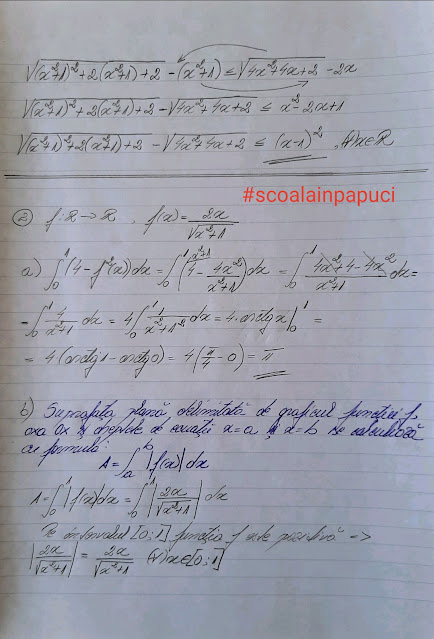 √((x²+1)²+2(x²+1)+2) - (x²+1) ≤ √(4x²+4x+2) - 2x
√((x²+1)²+2(x²+1)+2) - √(4x²+4x+2) ≤ x²-2x+1
√((x²+1)²+2(x²+1)+2) - √(4x²+4x+2) ≤ (x-1)², (∀)x∈ℝ
#scoalainpapuci
② f:ℝ→ℝ, f(x)= 2x/√(x²+1)
a) ∫₀¹(4-f²(x))dx = ∫₀¹(ˣ²⁺¹⁾4 - 4x²/(x²+1))dx = ∫₀¹ (4x²+4-4x²)/(x²+1) dx =
= ∫₀¹ 4/(x²+1) dx = 4∫₀¹ 1/(x²+1²) dx = 4·arctg x|₀¹ =
= 4(arctg1-arctg0) = 4(π/4 - 0) = π
b) Suprafața plană delimitată de graficul funcției f,
axa Ox și dreptele de ecuații x=a și x=b se calculează
cu formula:
A=∫ₐᵇ|f(x)|dx
A=∫₀¹|f(x)|dx=∫₀¹|2x/√(x²+1)| dx
Pe intervalul [0;1] funcția f este pozitivă =>
|2x/√(x²+1)| = 2x/√(x²+1) (∀)x∈[0;1]